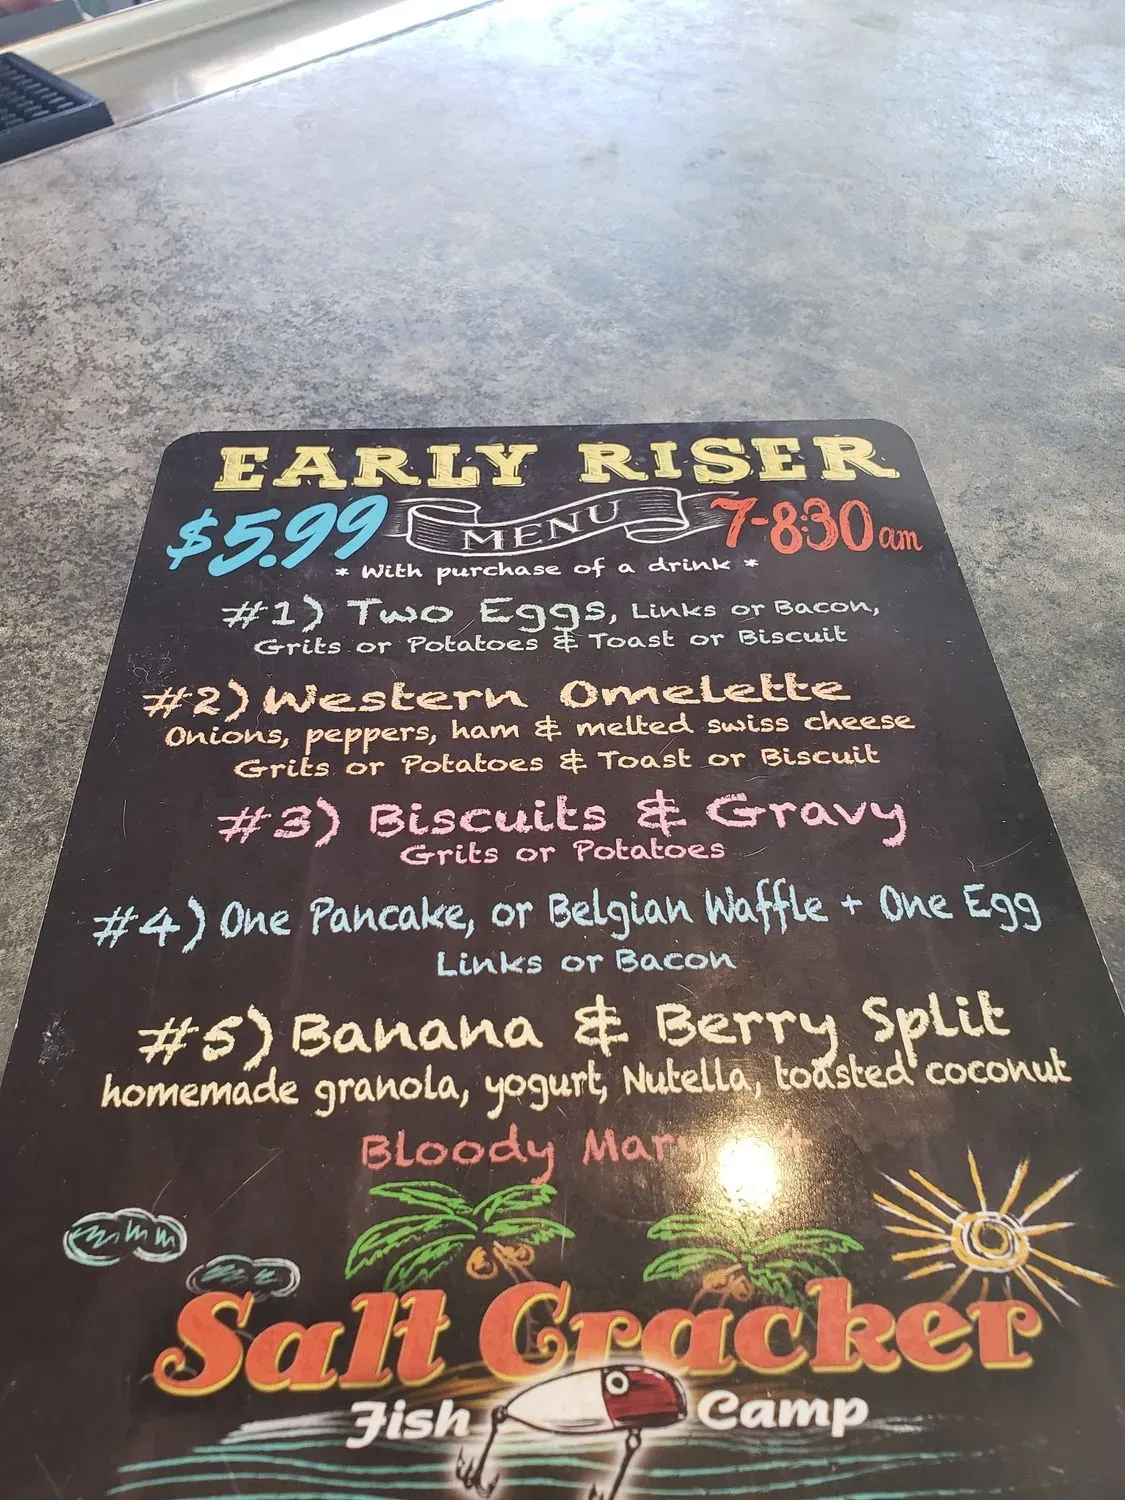 EARLY RISER
$5.99 MENU 7-8:30am
* With purchase of a drink *
#1) Two Eggs, Links or Bacon,
Grits or Potatoes & Toast or Biscuit
#2) Western Omelette
Onions, peppers, ham & melted swiss cheese
Grits or Potatoes & Toast or Biscuit
#3) Biscuits & Gravy
Grits or Potatoes
#4) One Pancake, or Belgian Waffle + One Egg
Links or Bacon
#5) Banana & Berry Split
homemade granola, yogurt, Nutella, toasted coconut
Bloody Mary
Salt Cracker
Fish Camp